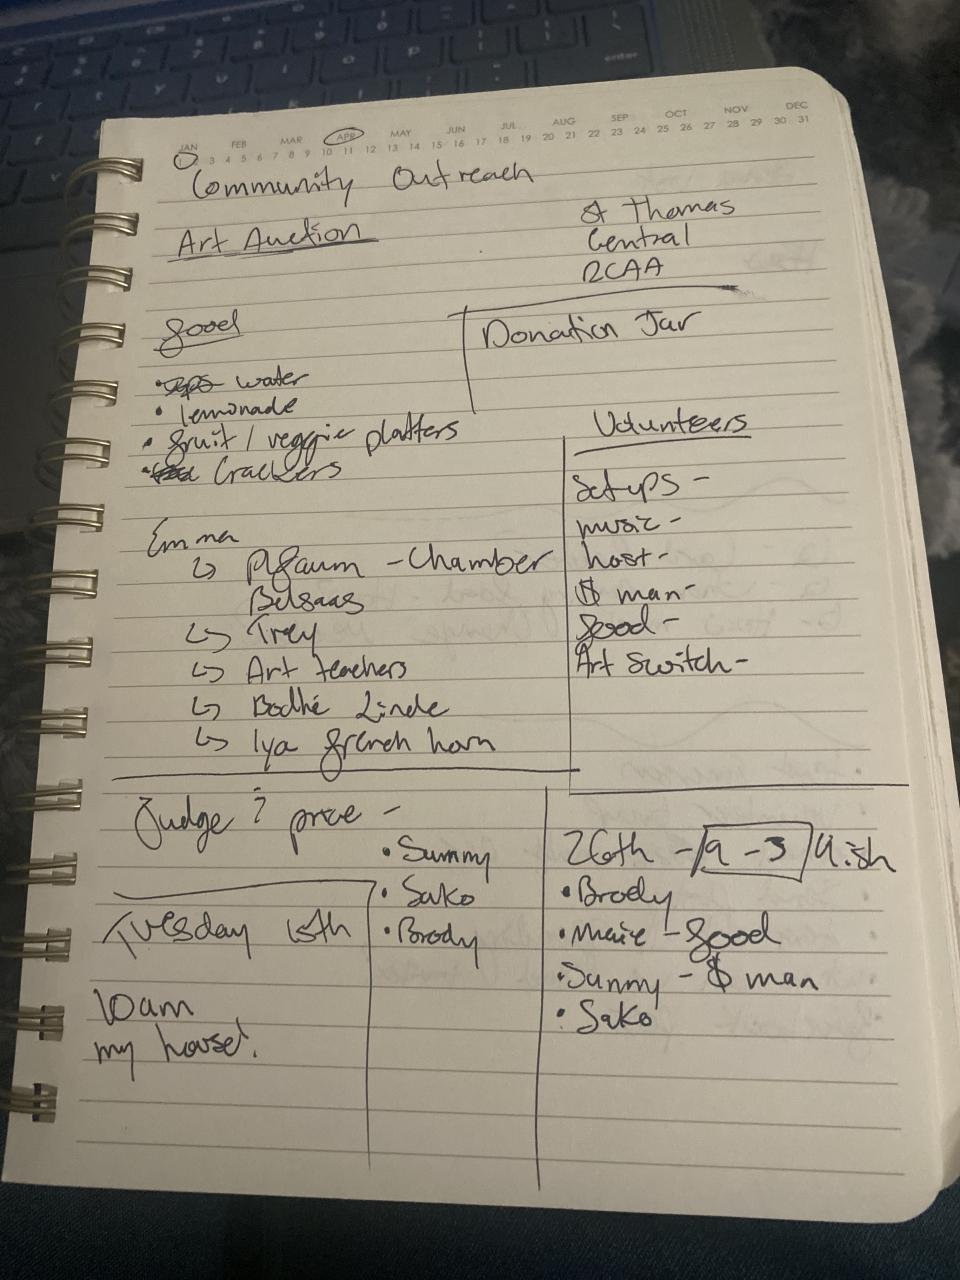 JAN FEB MAR APR MAY JUN JUL AUG SEP OCT NOV DEC
1 3 4 5 6 7 8 9 10 11 12 13 14 15 16 17 18 19 20 21 22 23 24 25 26 27 28 29 30 31
Community Outreach
Art Auction
St Thomas
Central
RCAA
food
• water
• lemonade
• fruit / veggie platters
• Crackers
Donation Jar
Volunteers
Set ups -
music -
host -
$ man -
food -
Art switch -
Emma
↳ Pfaum - Chamber
Belsaas
↳ Trey
↳ Art teachers
↳ Bodhi Linde
↳ Iya french horn
Judge ? price -
• Sunny
• Sako
• Brody
Tuesday 15th
10am
my house!
26th - 9 - 3 / 4ish
• Brody
• Maire - food
• Sunny - $ man
• Sako
enter